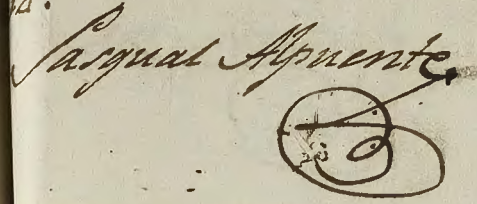 Pasqual Alpuente